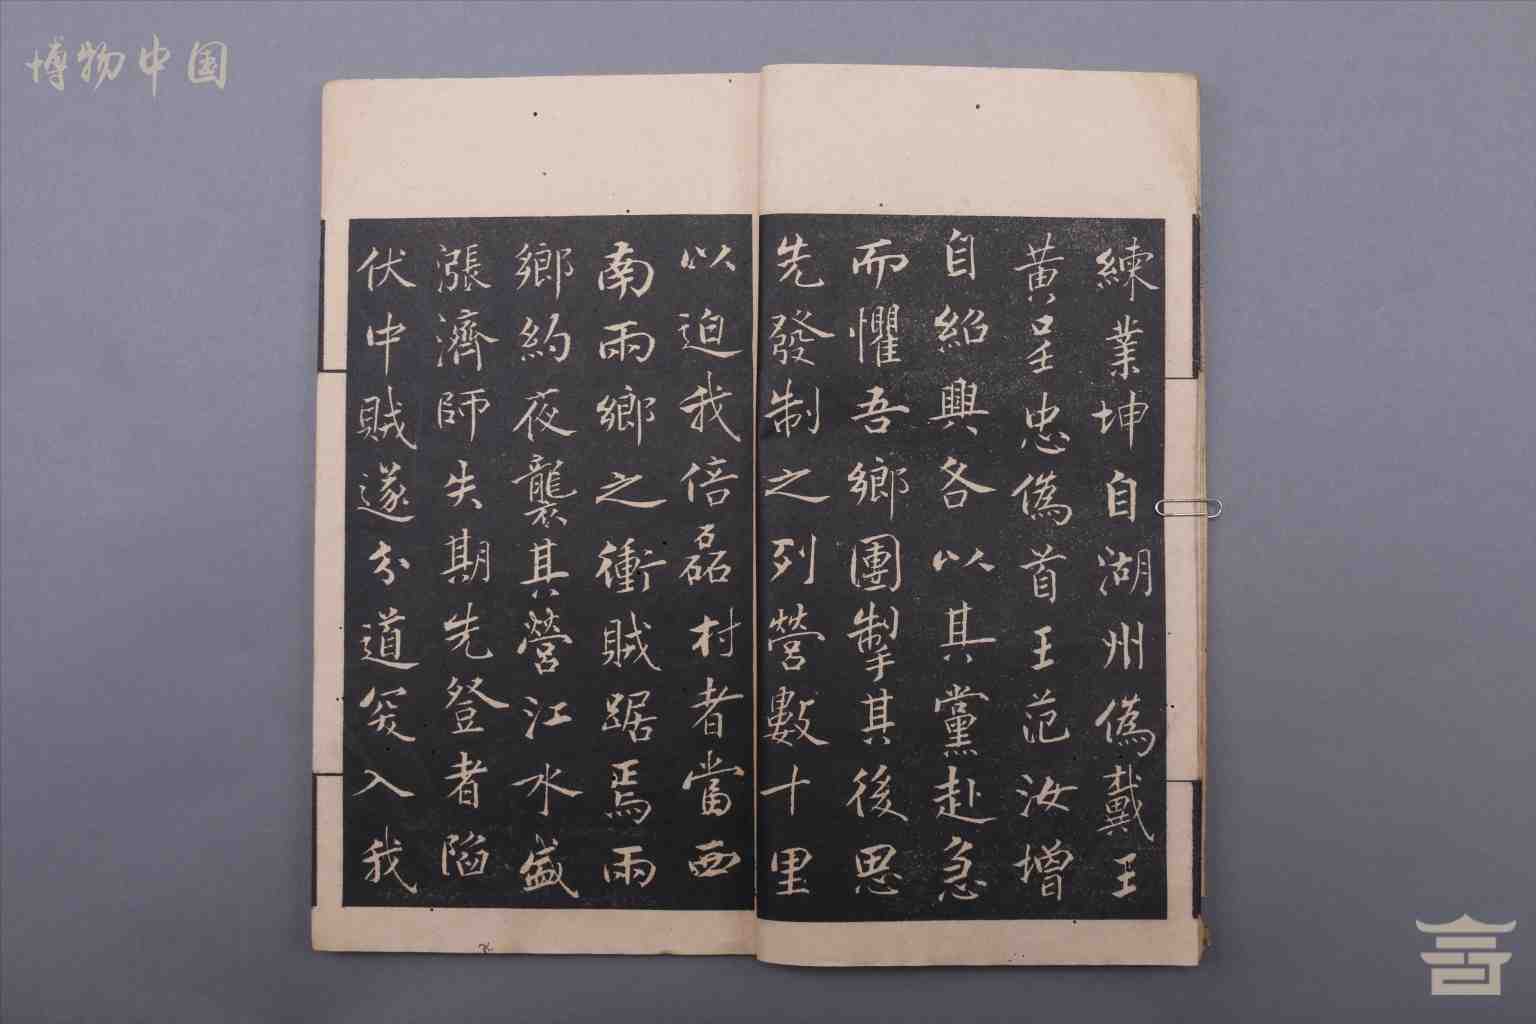 博物中国
練業坤自湖州偽戴王
黃呈忠偽首王范汝增
自紹興各以其黨赴急
而懼吾鄉團掣其後思
先發制之列營數十里
以迫我倍磊村者當西
南兩鄉之衝賊踞焉兩
鄉約夜襲其營江水盛
漲濟師失期先登者陷
伏中賊遂分道突入我